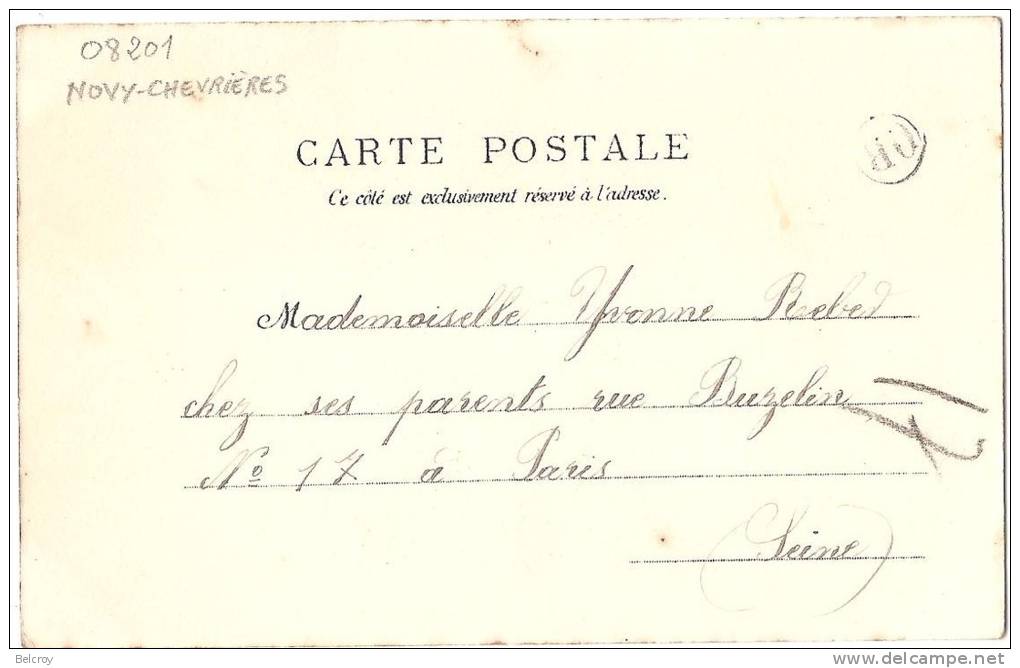 08201
NOVY-CHEVRIÈRES
CARTE POSTALE
Ce côté est exclusivement réservé à l'adresse.
Mademoiselle Yvonne
chez ses parents rue Buzelin
No 17 à Paris
(Seine)
Belcroy
delcampe.net